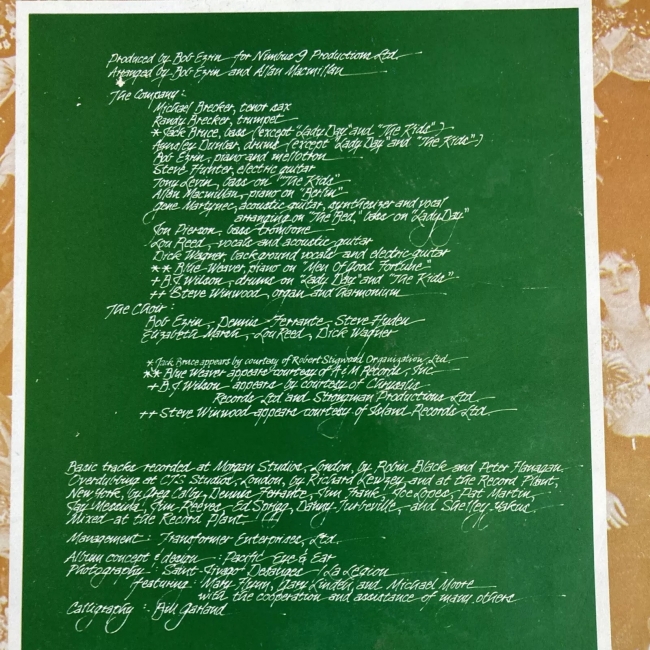 Produced by Bob Ezrin for Nimbus 9 Productions Ltd.
Arranged by Bob Ezrin and Allan Macmillan
The Company:
Michael Brecker, tenor sax
Randy Brecker, trumpet
*Jack Bruce, bass (except "Lady Day" and "The Kids")
Aynsley Dunbar, drums (except "Lady Day" and "The Kids")
Bob Ezrin, piano and mellotron
Steve Hunter, electric guitar
Tony Levin, bass on "The Kids"
Allan Macmillan, piano on "Berlin"
Gene Martynec, acoustic guitar, synthesizer and vocal
arranging on "The Bed," bass on "Lady Day"
Jon Pierson, bass trombone
Lou Reed, vocals and acoustic guitar
Dick Wagner, background vocals and electric guitar
** Blue Weaver, piano on "Men of Good Fortune"
+ B.J. Wilson, drums on "Lady Day" and "The Kids"
++ Steve Winwood, organ and harmonium
The Choir:
Bob Ezrin, Dennis Ferrante, Steve Hyden
Elizabeth March, Lou Reed, Dick Wagner
* Jack Bruce appears by courtesy of Robert Stigwood Organization Ltd.
** Blue Weaver appears courtesy of A&M Records, Inc.
+ B.J. Wilson appears by courtesy of Chrysalis
Records Ltd and Strongman Productions Ltd.
++ Steve Winwood appears courtesy of Island Records Ltd.
Basic tracks recorded at Morgan Studios, London, by Robin Black and Peter Flanagan.
Overdubbing at CTS Studios, London, by Richard Lewzey, and at the Record Plant,
New York, by Greg Calby, Dennis Ferrante, Jim Frank, Joe Lopes, Pat Martin,
Jay Messina, Jim Reeves, Ed Sprigg, Danny Turbeville, and Shelley Yakus.
Mixed at the Record Plant
Management: Transformer Enterprises, Ltd.
Album concept & design: Pacific Eye & Ear
Photography: Saint-Jivago Desanges / La Légion
featuring: Mary Flynn, Gary Lindell, and Michael Moore
with the cooperation and assistance of many others
Calligraphy: Bill Garland